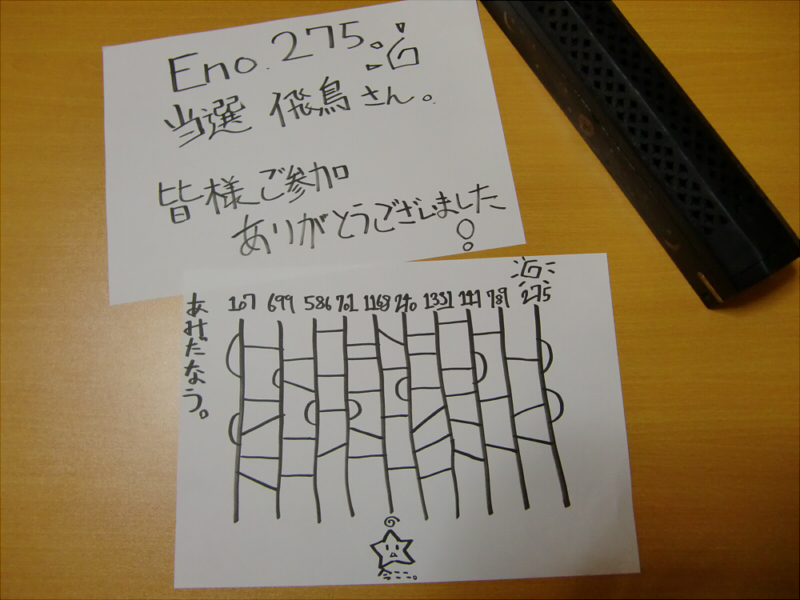 Eno.275。
当選 飛鳥さん。
皆様ご参加
ありがとうございました!
あみだなう。
107 699 586 701 1168 240 1331 141 789 275